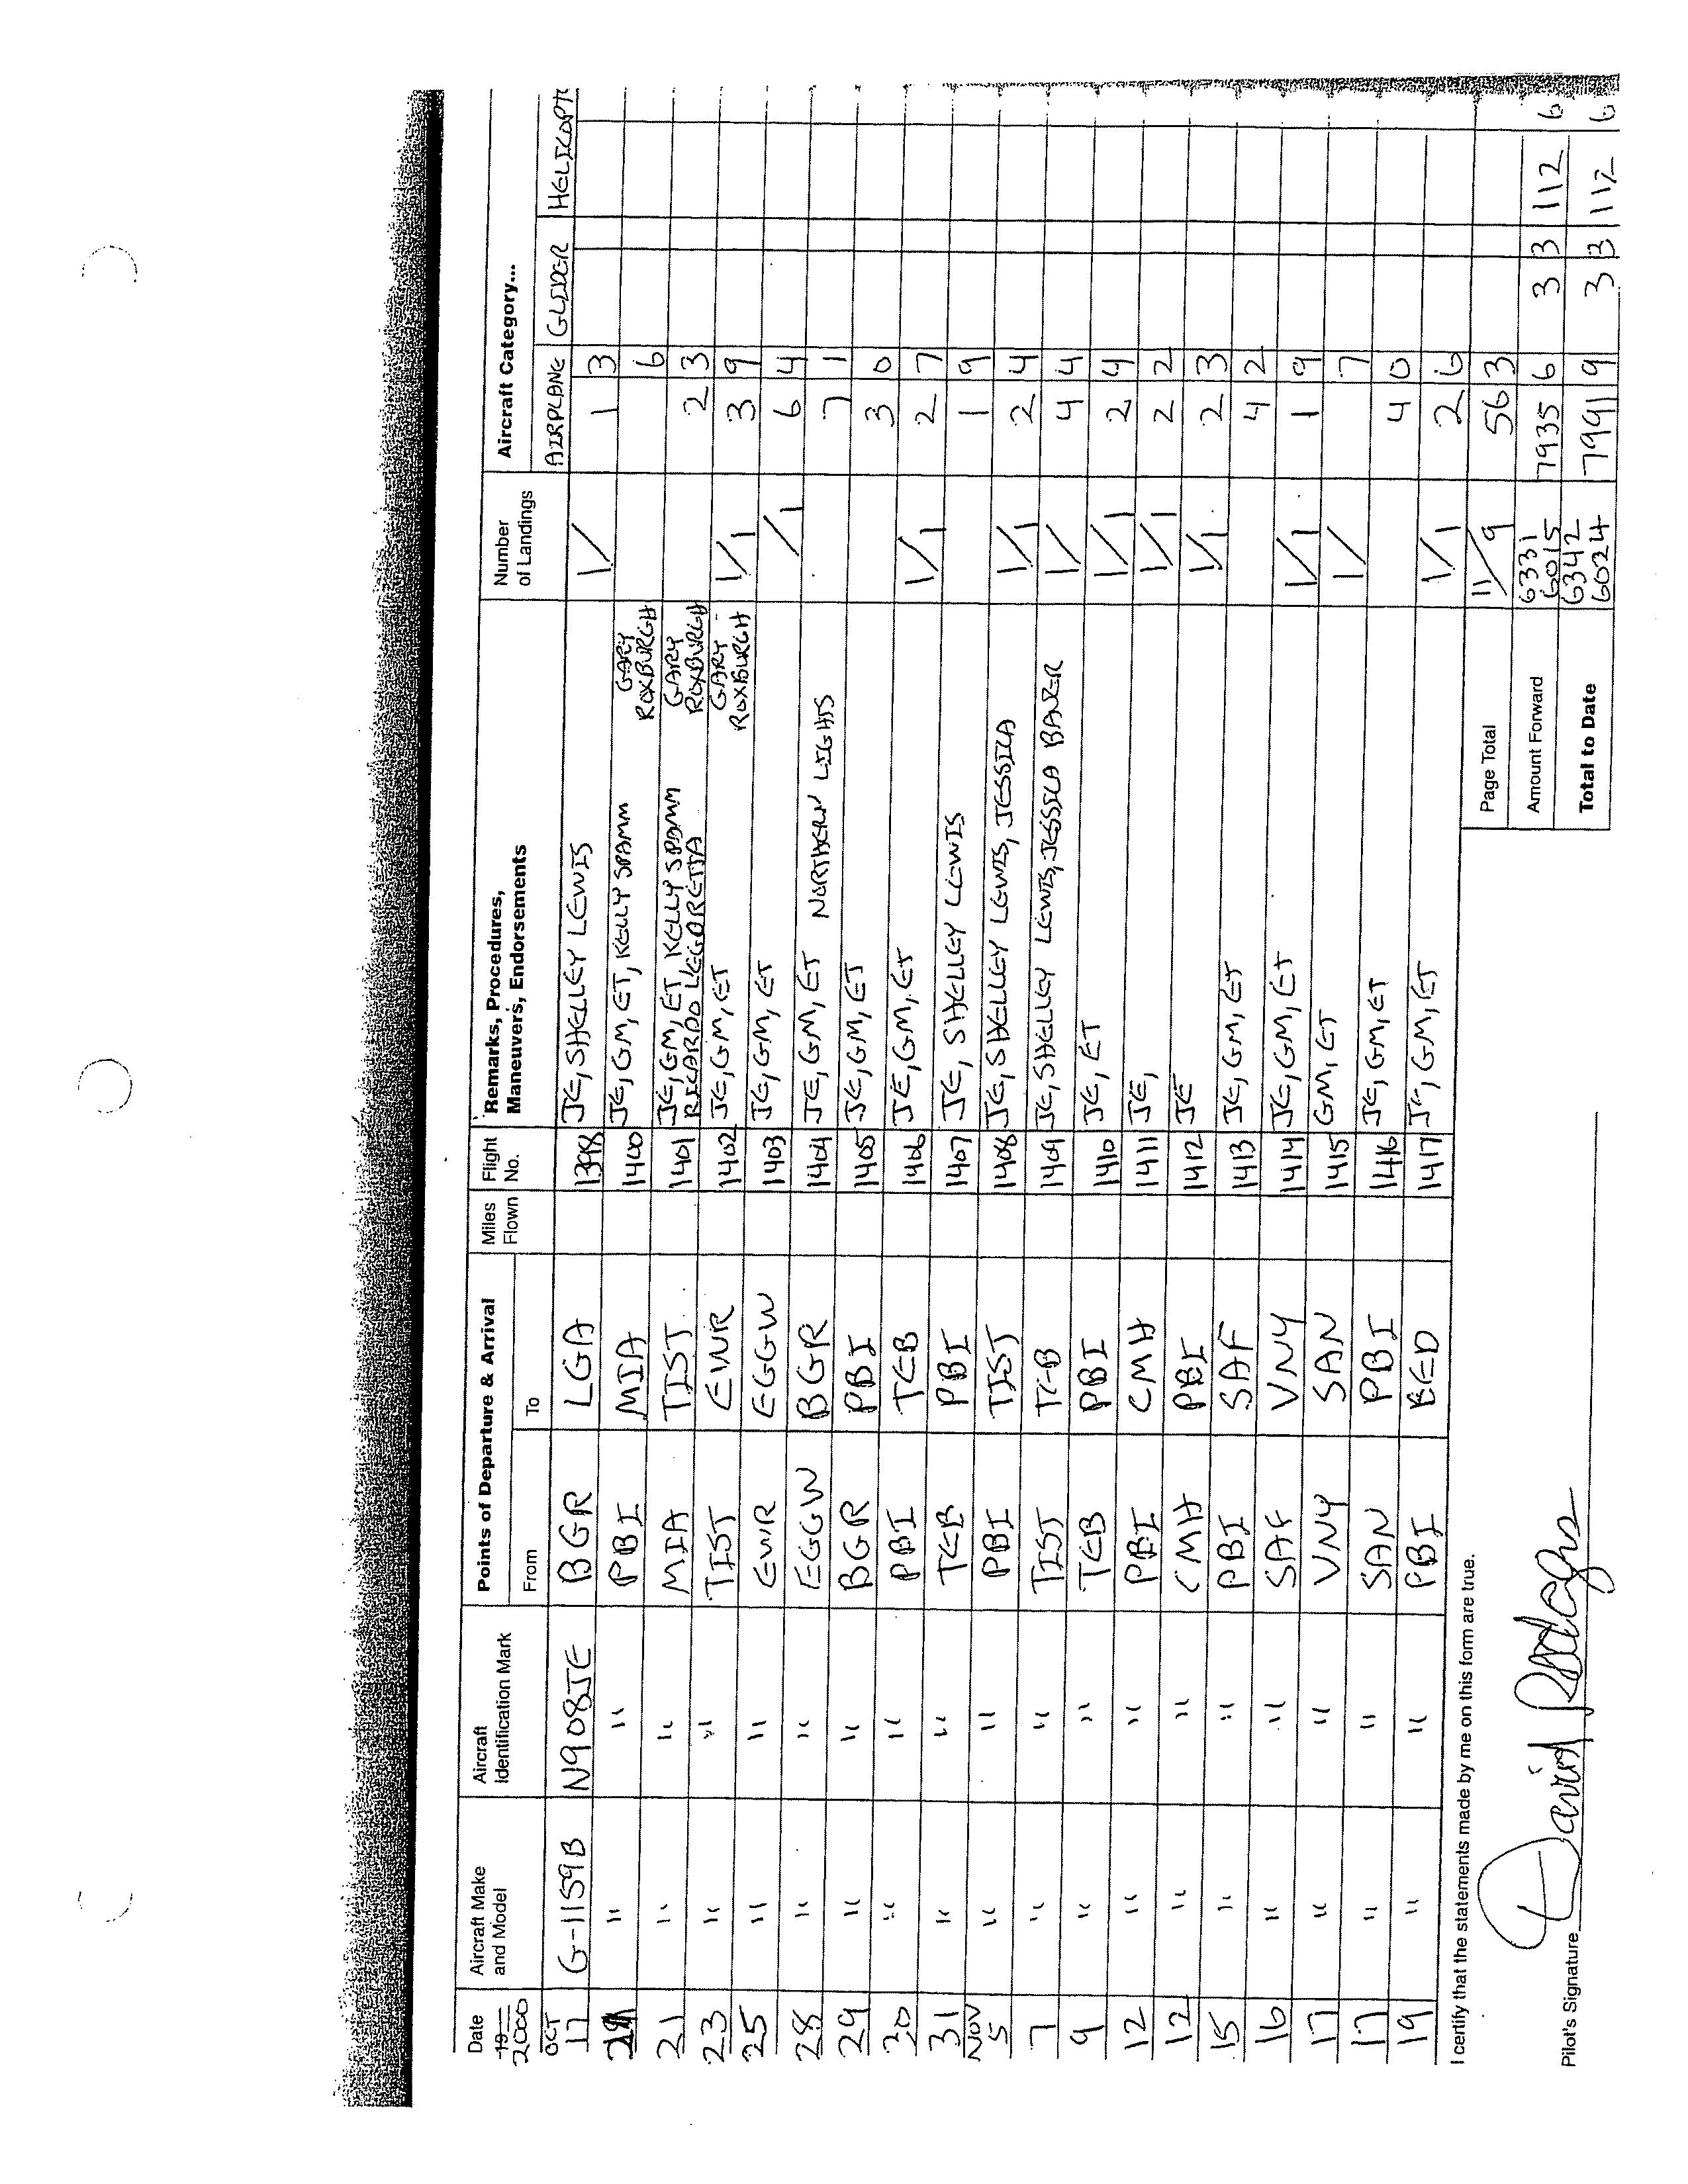 Date 19 2000 | Aircraft Make and Model | Aircraft Identification Mark | Points of Departure & Arrival From | To | Miles Flown | Flight No. | Remarks, Procedures, Maneuvers, Endorsements | Number of Landings | Aircraft Category... AIRPLANE | GLIDER | HELICOPT
OCT 17 | G-1159B | N908JE | BGR | LGA | 1398 | JE, SHELLEY LEWIS | 1/ | 1 3
" | " | PBI | MIA | 1400 | JE, GM, ET, KELLY SPAMM GARY ROXBURGH | 6
21 | " | " | MIA | TIST | 1401 | JE, GM, ET, KELLY SPAMM RICARDO LEGORETTA GARY ROXBURGH | 2 3
23 | " | " | TIST | EWR | 1402 | JE, GM, ET GARY ROXBURGH | 1/1 | 3 9
25 | " | " | EWR | EGGW | 1403 | JE, GM, ET | /1 | 6 4
28 | " | " | EGGW | BGR | 1404 | JE, GM, ET NORTHERN LIGHTS | 7 1
29 | " | " | BGR | PBI | 1405 | JE, GM, ET | 3 0
" | " | PBI | TEB | 1406 | JE, GM, ET | 1/1 | 2 7
31 | " | " | TEB | PBI | 1407 | JE, SHELLEY LEWIS | 1 9
NOV 5 | " | " | PBI | TIST | 1408 | JE, SHELLEY LEWIS, JESSICA | 1/1 | 2 4
7 | " | " | TIST | TEB | 1409 | JE, SHELLEY LEWIS, JESSICA BAKER | 1/ | 4 4
9 | " | " | TEB | PBI | 1410 | JE, ET | 1/1 | 2 4
12 | " | " | PBI | CMH | 1411 | JE, | 1/1 | 2 2
12 | " | " | CMH | PBI | 1412 | JE | 1/1 | 2 3
15 | " | " | PBI | SAF | 1413 | JE, GM, ET | 4 2
16 | " | " | SAF | VNY | 1414 | JE, GM, ET | 1/1 | 1 9
17 | " | " | VNY | SAN | 1415 | GM, ET | 1/ | 7
17 | " | " | SAN | PBI | 1416 | JE, GM, ET | 4 0
19 | " | " | PBI | BED | 1417 | JE, GM, ET | 1/1 | 2 6
I certify that the statements made by me on this form are true.
Page Total | 11/9 | 56 3
Amount Forward | 6331 6015 | 7935 6 | 3 3 | 112 6
Total to Date | 6342 6024 | 7991 9 | 3 3 | 112 6
Pilot's Signature David